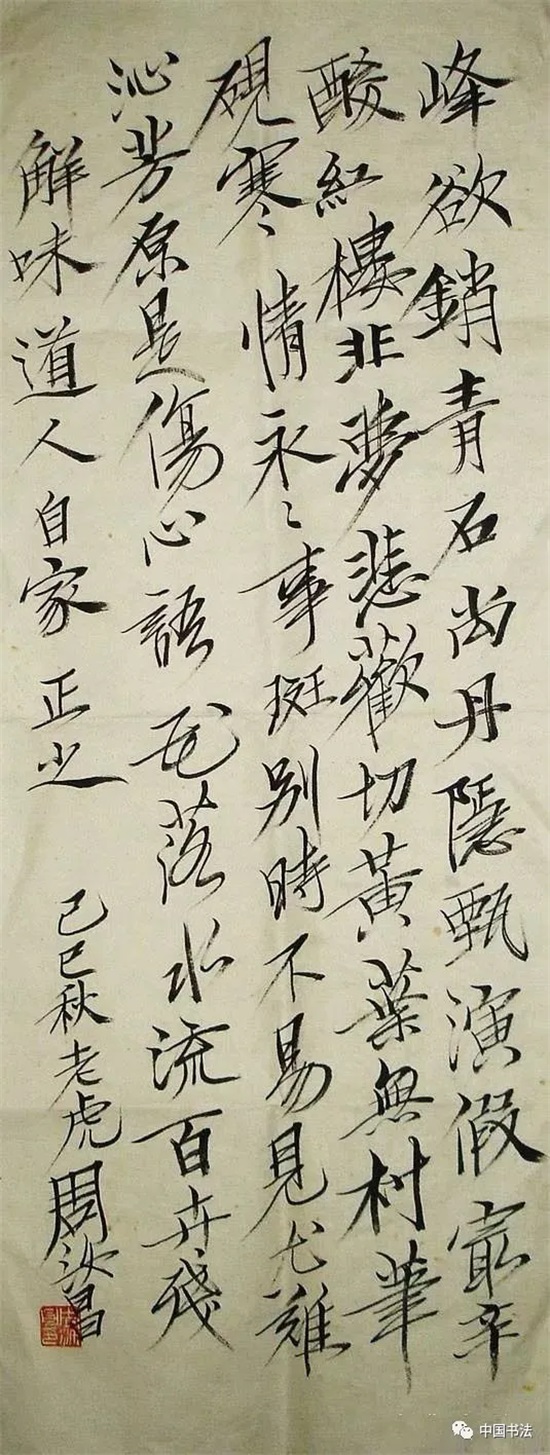 峰欲銷青石尚丹隱甄演假寂辛
酸紅樓非夢悲歡切黃葉無村筆
硯寒寒情永永事斑別時不易見尤難
沁芳原是傷心語花落水流百卉殘
解味道人自家正之
己巳秋老虎周汝昌
中国书法